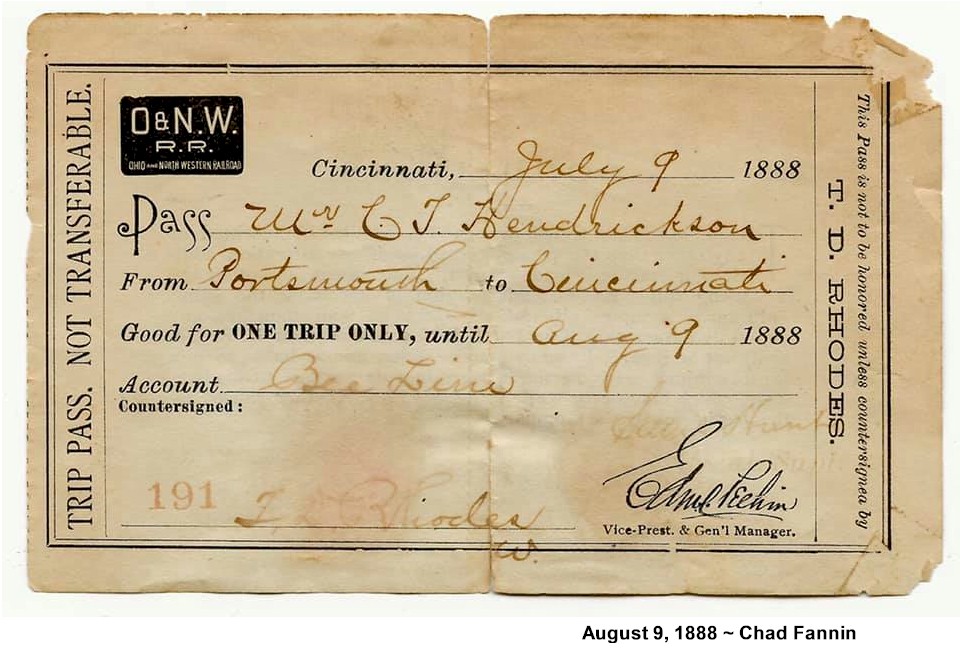 TRIP PASS. NOT TRANSFERABLE.
O & N.W.
R.R.
OHIO AND NORTH WESTERN RAILROAD
Cincinnati, July 9 1888
Pass Mr C T. Hendrickson
From Portsmouth to Cincinnati
Good for ONE TRIP ONLY, until Aug 9 1888
Account Bee Line
Countersigned:
191
T D Rhodes
W.
Vice-Prest. & Gen'l Manager.
This Pass is not to be honored unless countersigned by
T. D. RHODES.
August 9, 1888 ~ Chad Fannin